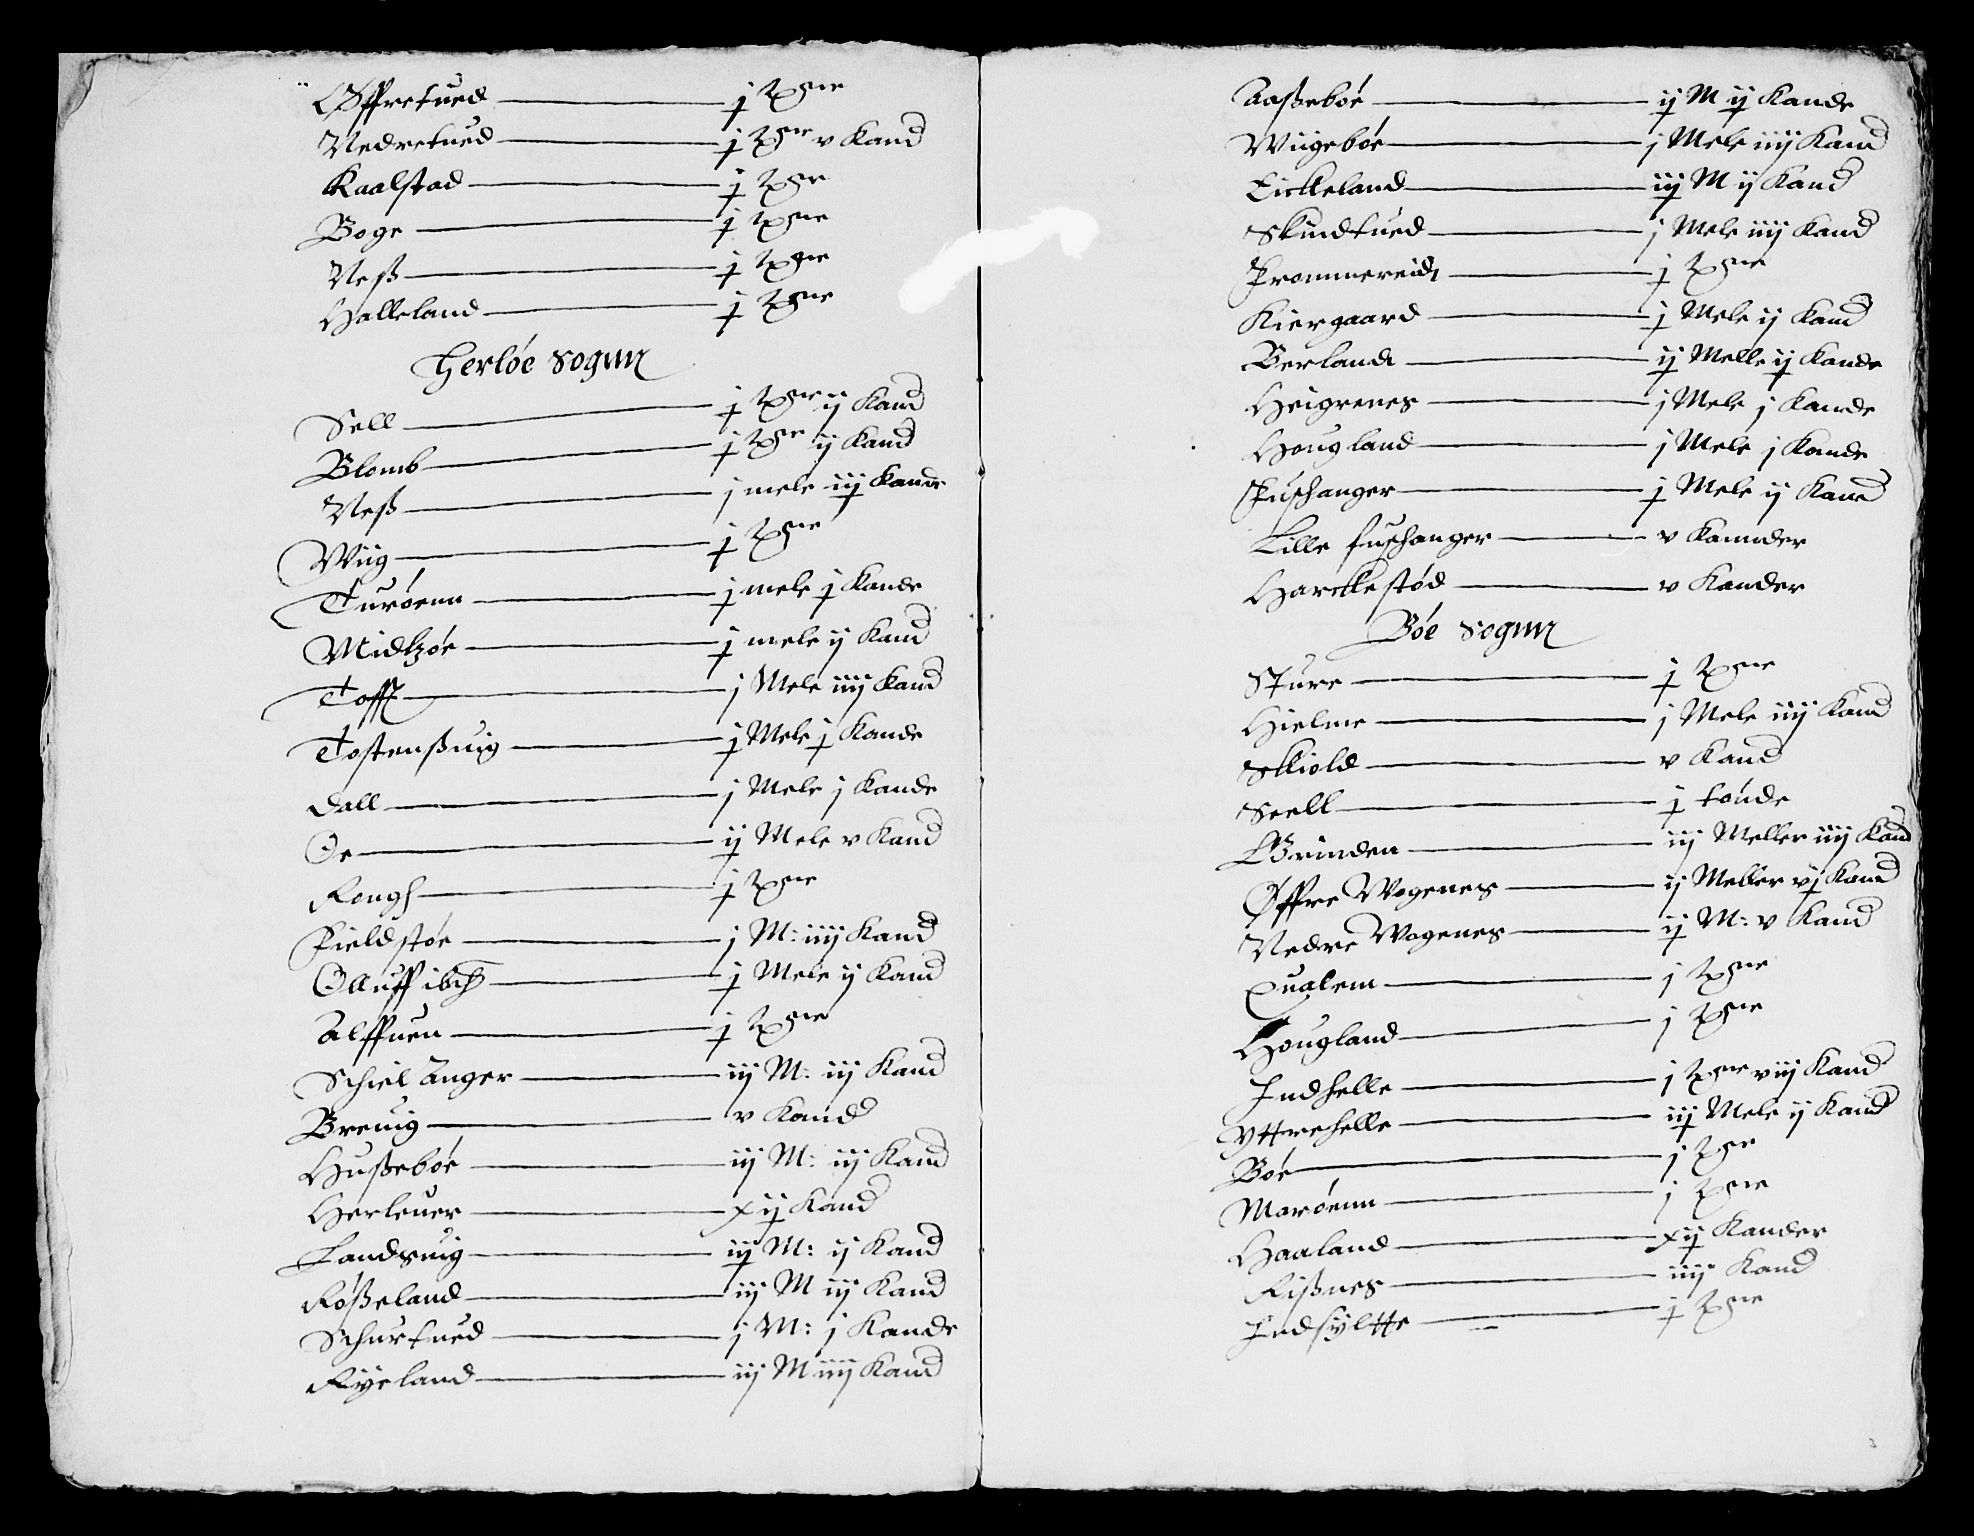 Øffretued — j tønne
Nedretued — j tønne v Kand
Kaalstad — j tønne
Boge — j tønne
Neß — j tønne
Halleland — j tønne
Herløe Sognn
Sell — j tønne ij Kand
Blomb — j tønne ij Kand
Neß — j mele iij Kander
Wiig — j tønne
Turøenn — j mele j Kande
Midtzøe — j mele ij Kand
Tofft — j Mele iiij Kand
Tostenßuig — j Mele j Kande
Dall — j Mele j Kande
Oe — ij Mele v Kand
Rongh — j tønne
Fieldstøe — j M: iiij Kand
Olluff ibch — j Mele ij Kand
Alffuen — j tønne
Schielanger — iij M: iij Kand
Breuig — v Kand
Hußebøe — iij M: iij Kand
Herleuer — xij Kand
Landsuig — iij M: ij Kand
Røßeland — iij M iij Kand
Schurtued — j M: j Kande
Ryeland — iij M iiij Kand
Aaßebøe — ij M ij Kande
Wiigebøe — j Mele iiij Kand
Eickeland — iij M ij Kand
Skindtued — j Mele iiij Kand
Frommereid — j tønne
Kiergaard — j Mele ij Kand
Berland — ij Melle ij Kande
Heigrenes — j Mele j Kande
Hougland — j Mele j Kande
Fushanger — j Mele ij Kand
Lille fushanger — v Kannder
Harckestød — v Kander
Bøe Sognn
Sture — j tønne
Hielme — j Mele iiij Kand
Skiold — v Kand
Seell — j tønde
Grinden — iij Meller iiij Kand
Øffre Wogenes — ij Meller vj Kand
Nedre Wogenes — ij M: v Kand
Qualem — j tønne
Hougland — j tønne
Indhelle — j tønne viij Kand
Yttrehelle — iij Mele ij Kand
Bøe — j tønne
Marøenn — j tønne
Haaland — xij Kander
Rißnes — iiij Kand
Indsyltte — j tønne